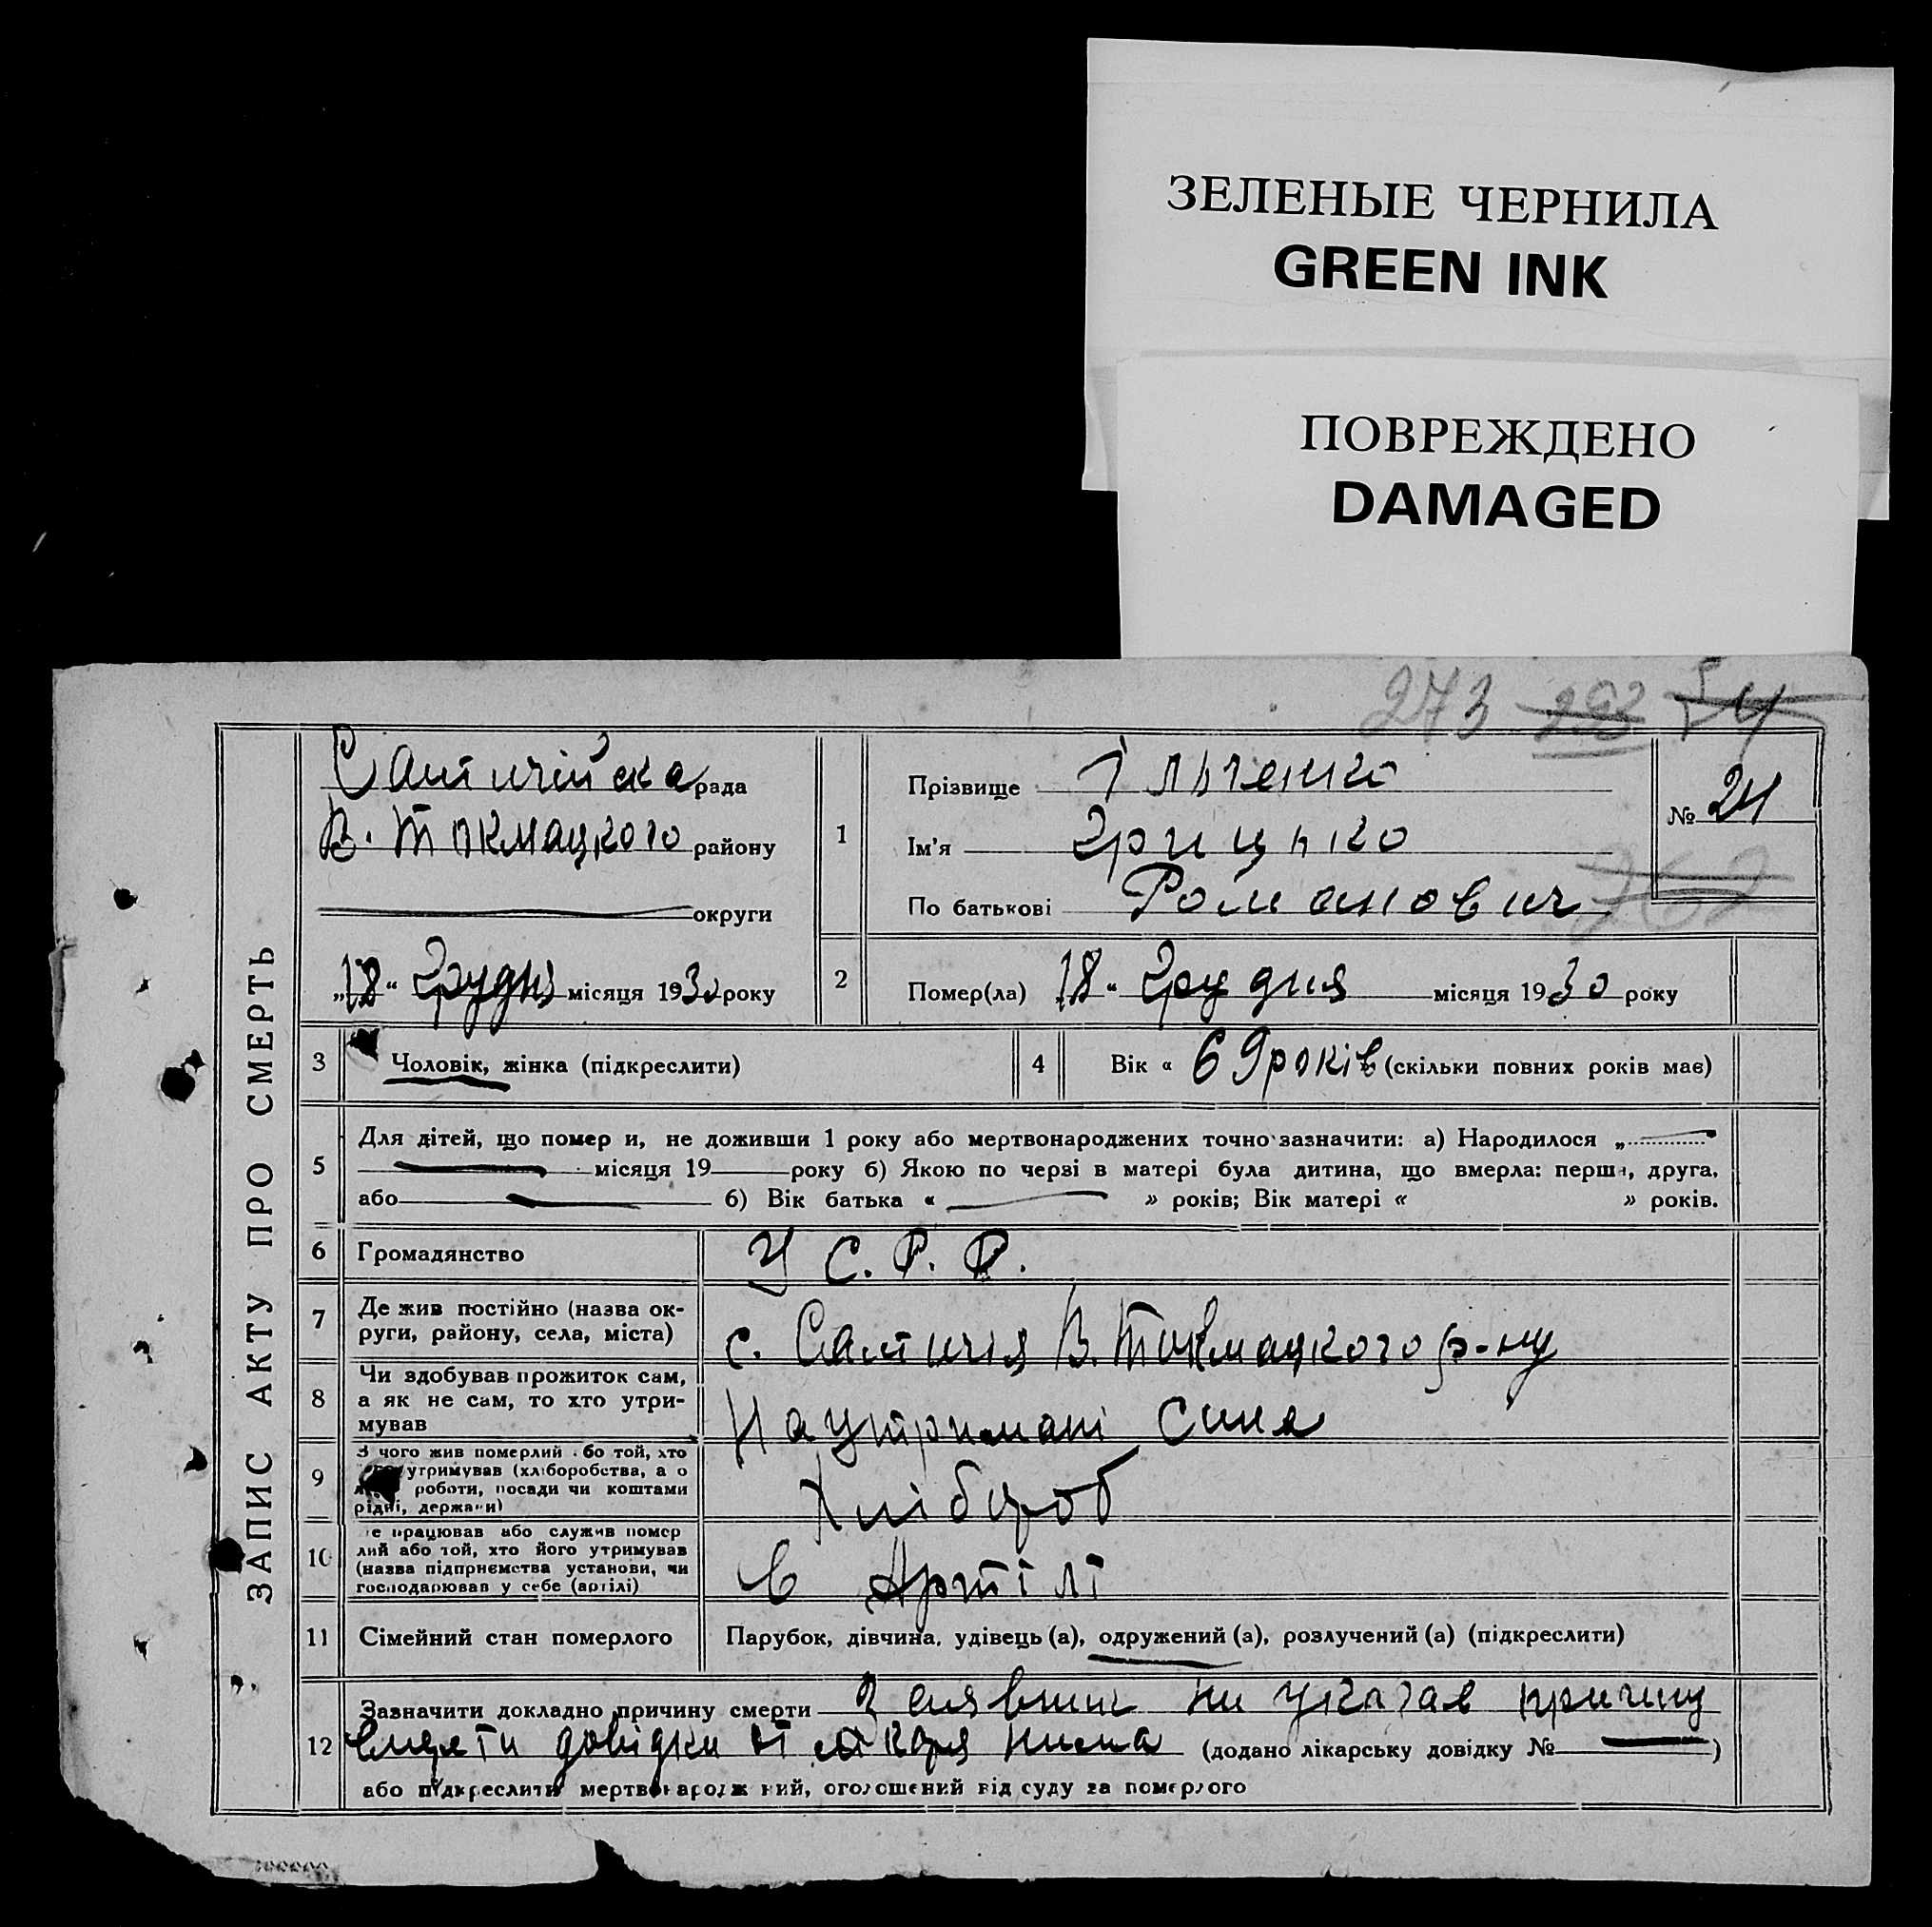 ЗЕЛЕНЫЕ ЧЕРНИЛА
GREEN INK
ПОВРЕЖДЕНО
DAMAGED
273
ЗАПИС АКТУ ПРО СМЕРТЬ
рада
В. Токмацкого району
округи
„18“ Грудня місяця 1930 року
1
Прізвище Ільченко
Ім'я Грицько
По батькові Романович
№ 24
2
Помер(ла) 18 “ Грудня місяця 1930 року
3
Чоловік, жінка (підкреслити)
4
Вік « 69 років (скільки повних років має)
5
Для дітей, що помер и, не доживши 1 року або мертвонароджених точно зазначити: а) Народилося „
місяця 19 року б) Якою по черзі в матері була дитина, що вмерла: перша, друга,
або б) Вік батька « » років; Вік матері « » років.
6
Громадянство
У С. Р. Р.
7
Де жив постійно (назва ок-
руги, району, села, міста)
с. В. Токмацкого р-ну
8
Чи здобував прожиток сам,
а як не сам, то хто утри-
мував
На утримані сина
9
З чого жив померлий бо той, хто
утримував (хліборобства, а о
роботи, посади чи коштами
рідні, держави)
Хлібороб
10
е працював або служив помер
лий або той, хто його утримував
(назва підприємства установи, чи
господарював у себе (артілі)
в Артілі
11
Сімейний стан померлого
Парубок, дівчина, удівець (а), одружений (а), розлучений (а) (підкреслити)
12
Зазначити докладно причину смерти Заявник ни указав причину
смерти довідки від лікаря нима (додано лікарську довідку № )
або підкреслити мертвонародж ний, оголошений від суду за померлого